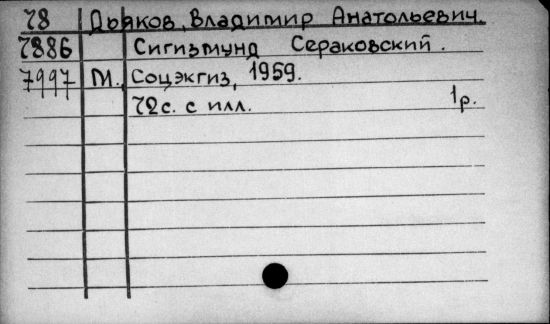 78 Дьяков, Владимир Анатольевич.
7886 Сигизмунд Сераковский.
7997 М., Соцэкгиз, 1959.
72с. с илл. 1р.